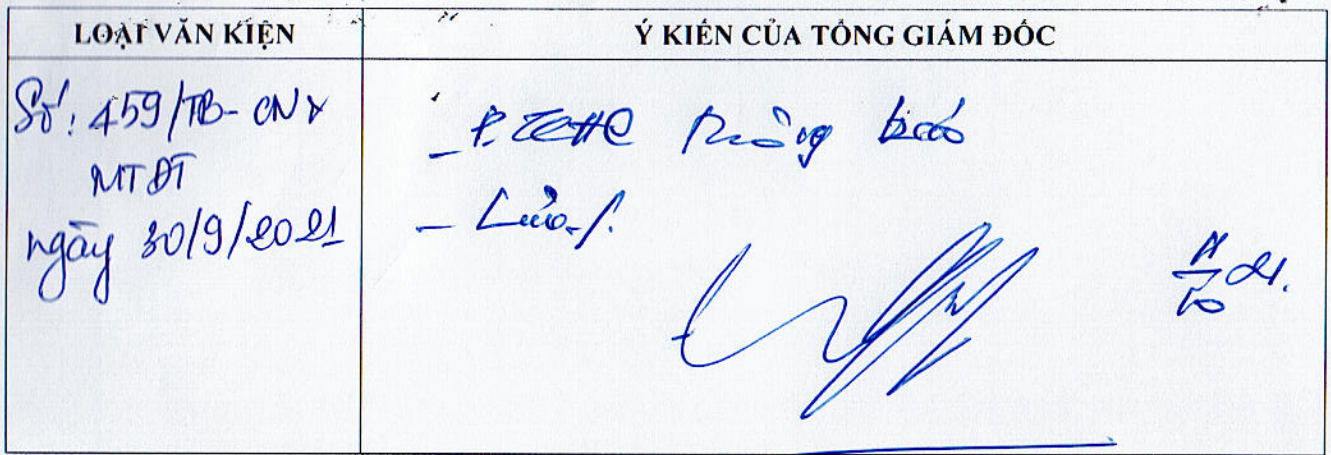 LOẠI VĂN KIỆN
Ý KIẾN CỦA TỔNG GIÁM ĐỐC
Số: 459/TB-CNX
MTĐT
ngày 30/9/2021
- P. TCHC thông báo
- Lưu./.
11/10 21.